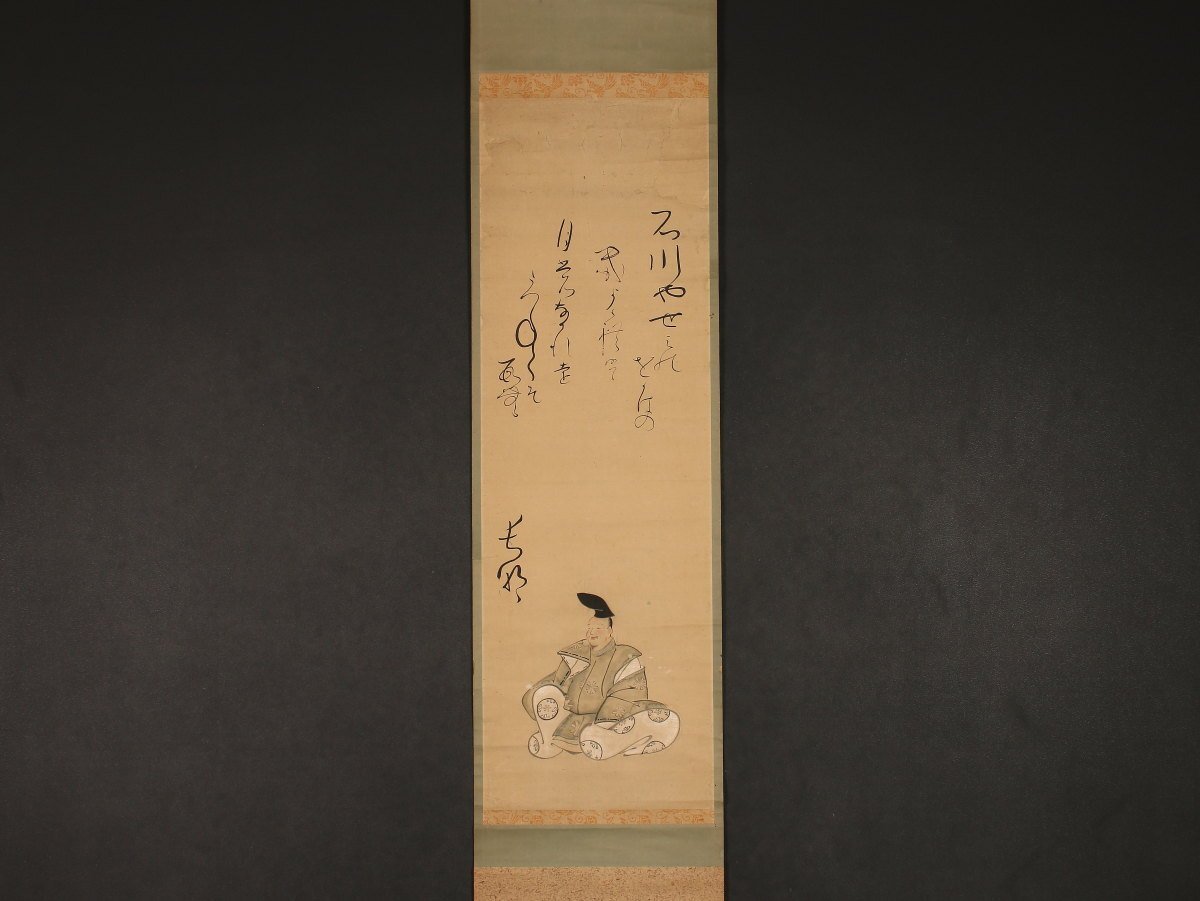 石川や世みの
を川の
きよけれは
月もなかれを
たつねてそ
すむ
長明